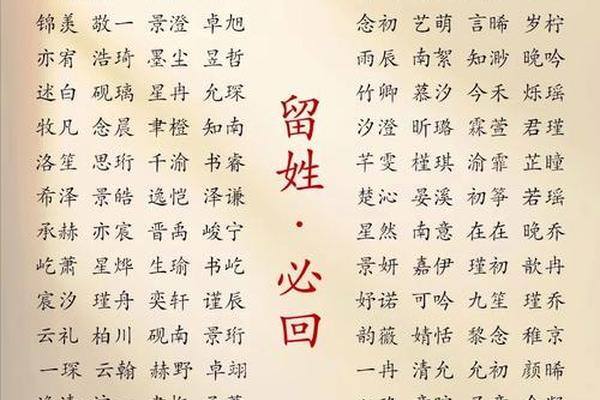 锦羡 敬一 景澄 卓旭
亦宥 浩琦 墨尘 昱哲
述白 砚璃 星冉 允琛
牧凡 念晨 聿橙 知南
洛笙 思珩 千渝 书睿
希泽 景皓 逸恺 泽谦
承赫 亦宸 晋禹 峻宁
屹萧 星烨 生瑜 书屹
宸汐 瑾舟 奕轩 谨辰
云礼 柏川 砚南 景珩
一琛 云翰 赫野 卓翊
留姓·必回
念初 艺萌 言晞 岁柠
雨辰 南絮 知渺 晚吟
竹卿 慕汐 今禾 烁瑶
汐澄 昕璐 霖萱 君瑾
芊雯 槿琪 渝霏 芷瞳
楚沁 晏溪 初筝 若瑶
星然 南意 在在 晚乔
景妍 嘉伊 瑾初 歆冉
妤诺 可吟 九笙 瑾乔
韵薇 婧恬 黎念 稚京
一冉 清允 允初 颜晞